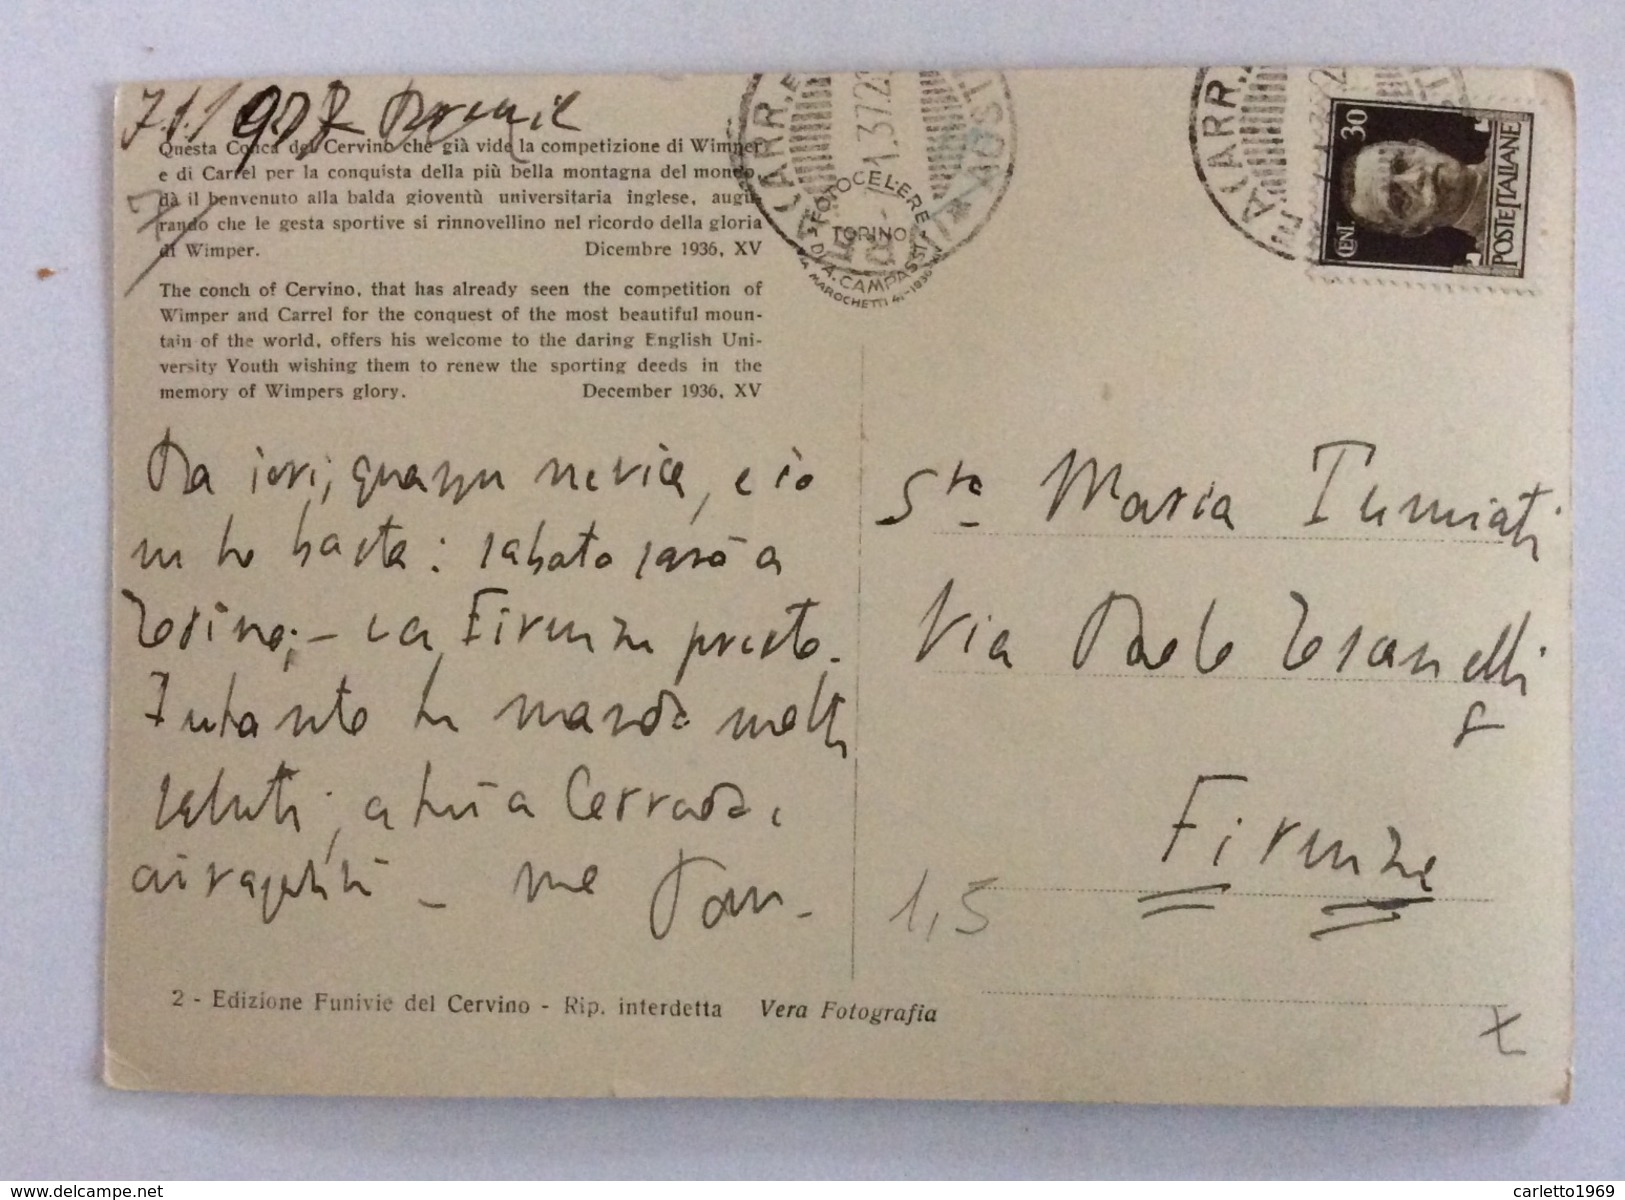 7.1.1937 Breuil
Questa Conca del Cervino che già vide la competizione di Wimper
e di Carrel per la conquista della più bella montagna del mondo,
dà il benvenuto alla balda gioventù universitaria inglese, augu-
rando che le gesta sportive si rinnovellino nel ricordo della gloria
di Wimper. Dicembre 1936, XV
The conch of Cervino, that has already seen the competition of
Wimper and Carrel for the conquest of the most beautiful moun-
tain of the world, offers his welcome to the daring English Uni-
versity Youth wishing them to renew the sporting deeds in the
memory of Wimpers glory. December 1936, XV
Da ieri, quassù nevica, e io
ne ho basta: sabato sarò a
Torino; - e a Firenze presto.
Intanto ti mando molti
saluti; a tutti a
-
2 - Edizione Funivie del Cervino - Rip. interdetta Vera Fotografia
FOTOCELERE
TORINO
DI A. CAMPASSI
VIA MAROCHETTI 41-1936-XV
CENT. 30
POSTE ITALIANE
Sta Maria Tumiati
Via Paolo Toscanelli
Firenze
1,5
delcampe.net
carletto1969